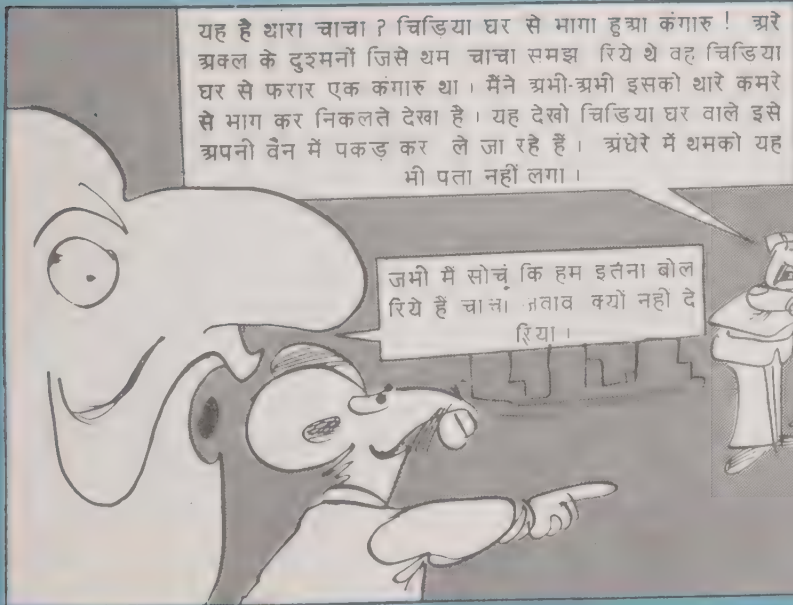 यह है थारा चाचा ? चिडिया घर से भागा हुआ कंगारु ! अरे
अक्ल के दुश्मनों जिसे थम चाचा समझ रिये थे वह चिडिया
घर से फरार एक कंगारु था । मैंने अभी-अभी इसको थारे कमरे
से भाग कर निकलते देखा है । यह देखो चिडिया घर वाले इसे
अपनी वैन में पकड़ कर ले जा रहे हैं । अंधेरे में थमको यह
भी पता नहीं लगा ।
जभी मैं सोचूं कि हम इतना बोल
रिये हैं चाचा जवाव क्यों नहीं दे
रिया ।